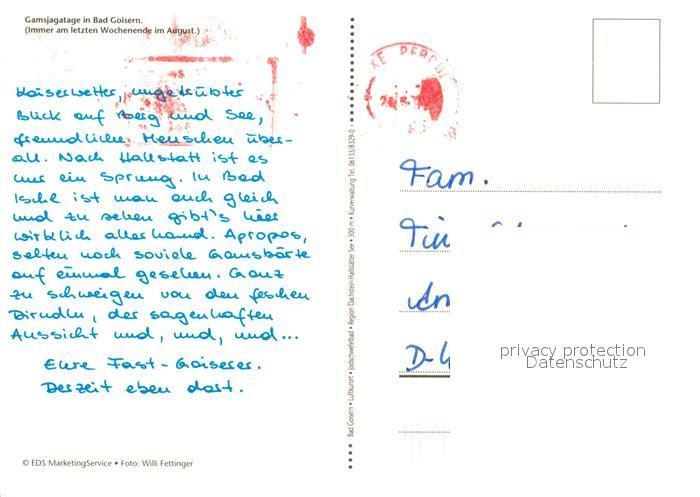 Gamsjagatage in Bad Goisern.
(Immer am letzten Wochenende im August.)
Kaiserwetter, ungetrübter
Blick auf Berg und See,
freundliche Menschen über-
all. Nach Hallstatt ist es
nur ein Sprung. In Bad
Ischl ist man auch gleich
und zu sehen gibt's hier
wirklich allerhand. Apropos,
selten noch soviele Gamsbärte
auf einmal gesehen. Ganz
zu schweigen von den feschen
Dirndln, der sagenhaften
Aussicht und, und, und...
Eure Fast-Goiserer.
Derzeit eben dort.
© EDS MarketingService • Foto: Willi Fettinger
Bad Goisern • Luftkurort • Jodschwefelbad • Region Dachstein-Hallstätter See • 500 m • Kurverwaltung Tel. 06135/8329-0
Fam.
privacy protection
Datenschutz